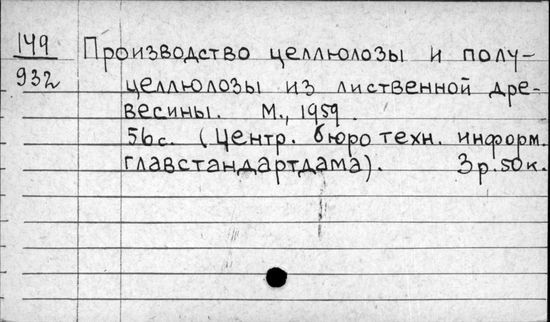 149 Производство целлюлозы и полу-
932 целлюлозы из лиственной дре-
весины. М., 1959.
56с. (Центр. бюро техн. информ.
главстандартдама). 3р.50к.